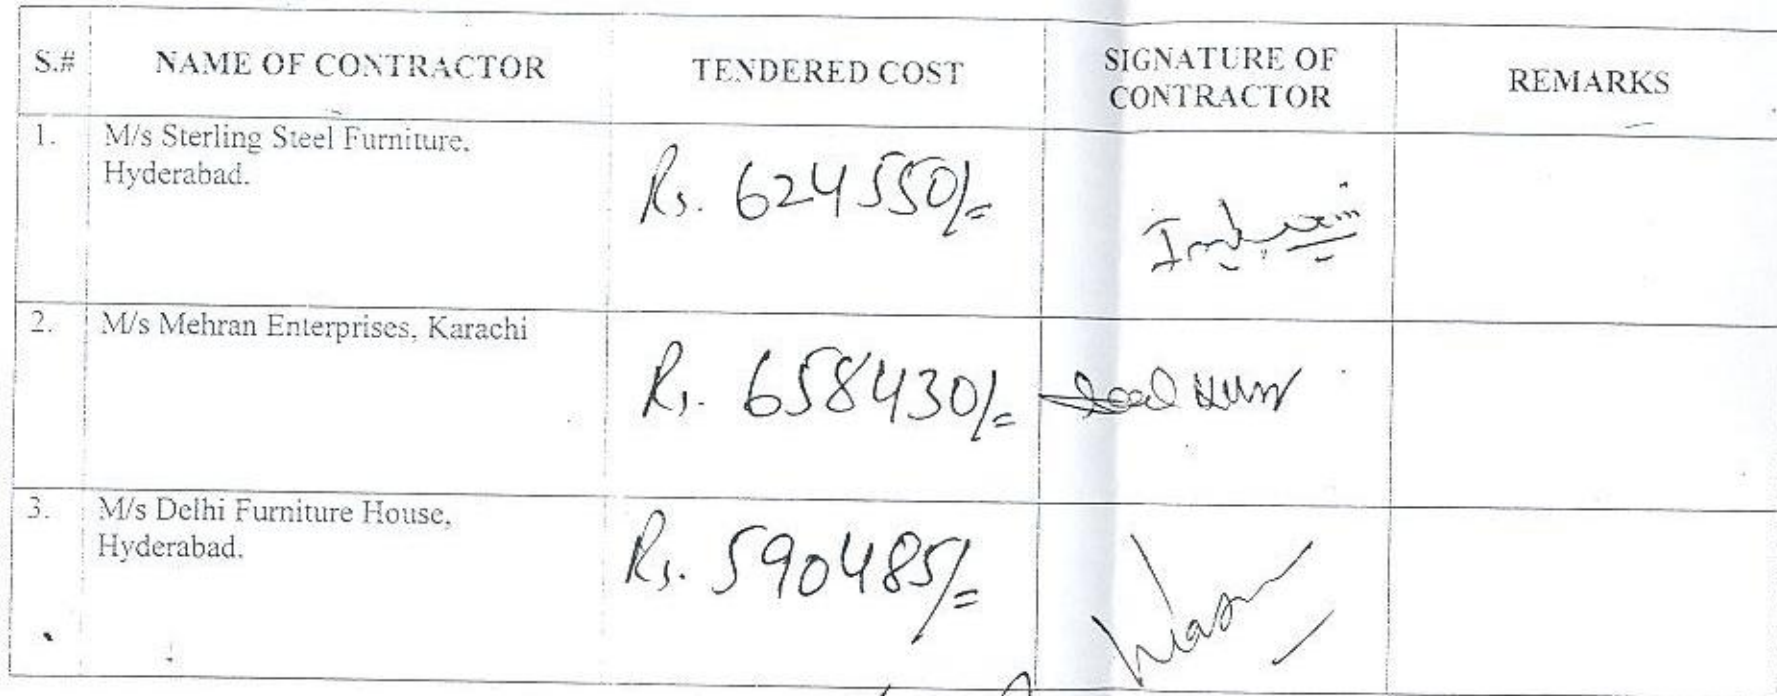 S.# NAME OF CONTRACTOR TENDERED COST SIGNATURE OF CONTRACTOR REMARKS
1. M/s Sterling Steel Furniture,
Hyderabad.
Rs. 624550/=
2. M/s Mehran Enterprises, Karachi
Rs. 658430/=
3. M/s Delhi Furniture House,
Hyderabad.
Rs. 590485/=